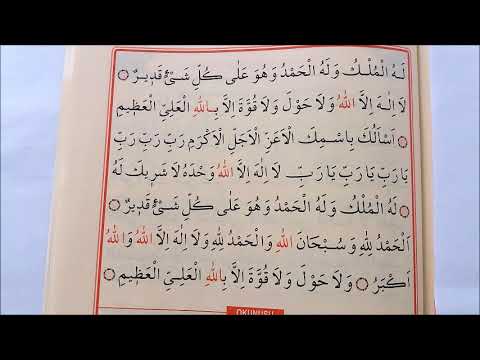 لَهُ الْمُلْكُ وَلَهُ الْحَمْدُ وَهُوَ عَلٰى كُلِّ شَىْءٍ قَدٖيرٌ ۝
لَا اِلٰهَ اِلَّا اللّٰهُ وَلَا حَوْلَ وَلَا قُوَّةَ اِلَّا بِاللّٰهِ الْعَلِىِّ الْعَظٖيمِ
۝ اَسْاَلُكَ بِاسْمِكَ الْاَعَزِّ الْاَجَلِّ الْاَكْرَمِ رَبِّ رَبِّ رَبِّ
يَارَبِّ يَارَبِّ يَارَبِّ لَا اِلٰهَ اِلَّا اللّٰهُ وَحْدَهُ لَا شَرٖيكَ لَهُ
لَهُ الْمُلْكُ وَلَهُ الْحَمْدُ وَهُوَ عَلٰى كُلِّ شَىْءٍ قَدٖيرٌ ۝
اَلْحَمْدُ لِلّٰهِ وَسُبْحَانَ اللّٰهِ وَالْحَمْدُ لِلّٰهِ وَلَا اِلٰهَ اِلَّا اللّٰهُ وَاللّٰهُ
اَكْبَرُ ۝ وَلَا حَوْلَ وَلَا قُوَّةَ اِلَّا بِاللّٰهِ الْعَلِىِّ الْعَظٖيمِ ۝
OKUNUŞU